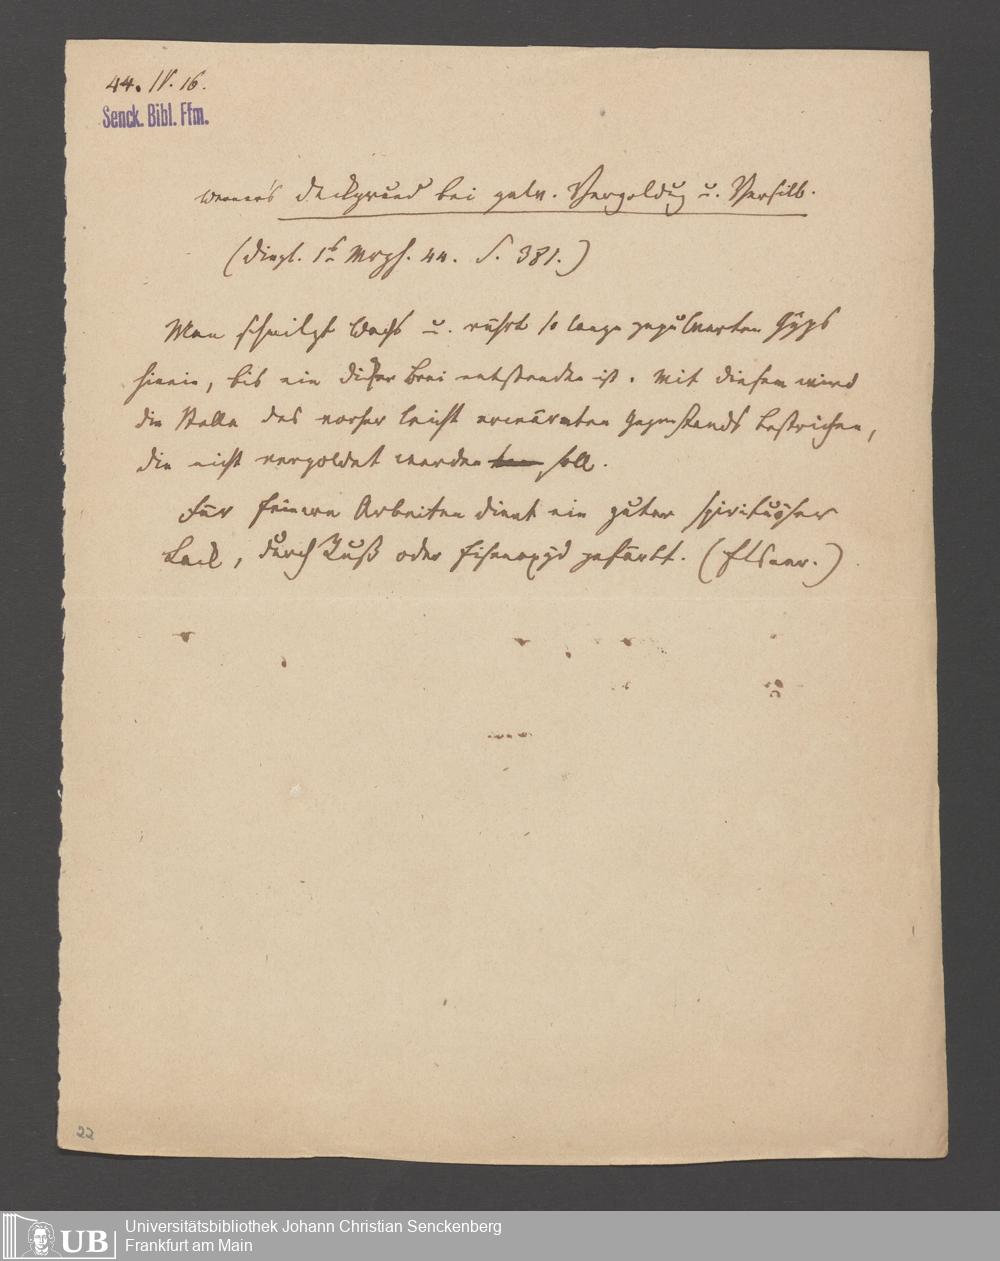 44. IV. 16.
Senck. Bibl. Ffm.
Werner's Deckgrund bei galv. Vergoldung u. Versilb.
(Dingl. 44. S. 381.)
Man schmilzt Wachs u. rührt so lange gepulverten Gÿps
hinein, bis ein dicker Brei entstanden ist. Mit diesem wird
die Stelle des vorher leicht erwärmten Gegenstands bestrichen,
die nicht vergoldet werden soll.
Für feinere Arbeiten dient ein guter spirituöser
Lack, durch Ruß oder Eisenoxÿd gefärbt. (Elsner.)
22
UB
Universitätsbibliothek Johann Christian Senckenberg
Frankfurt am Main